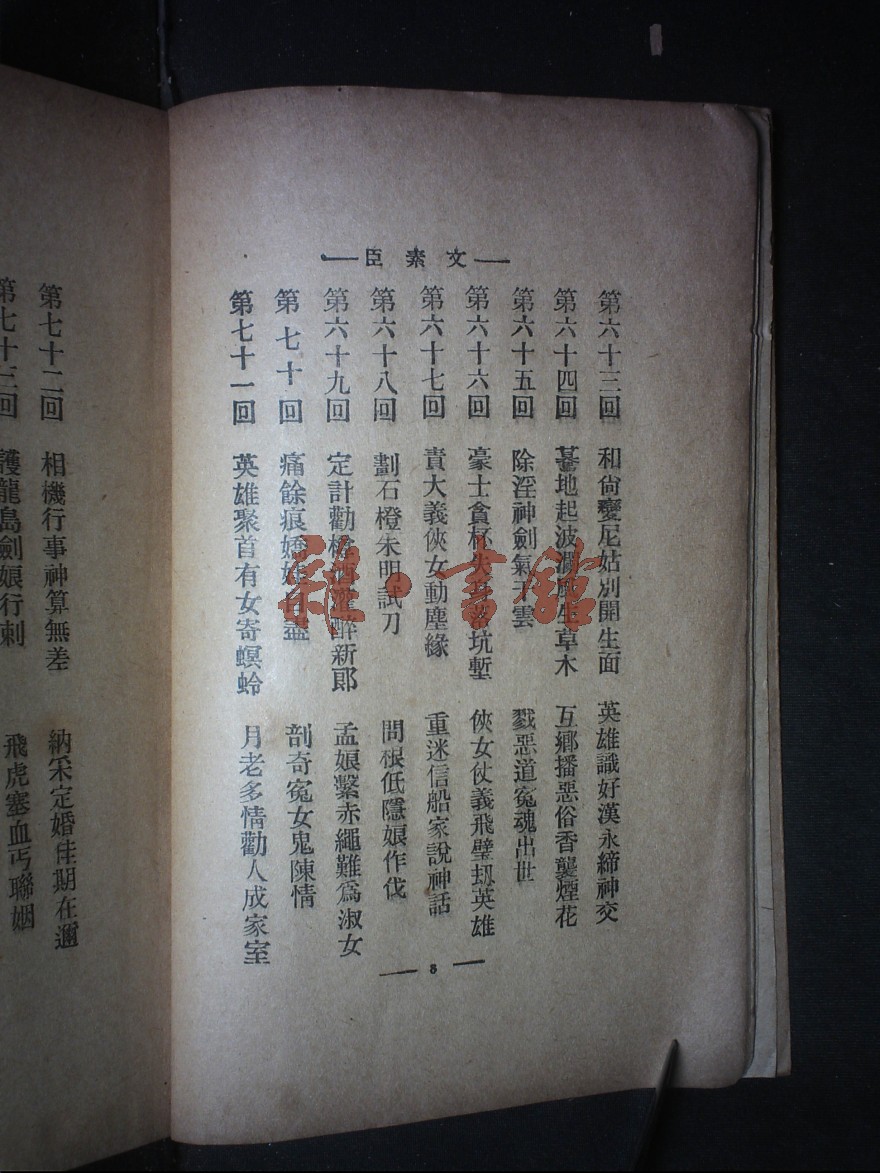 文素臣
第六十三回 和尙變尼姑別開生面 英雄識好漢永締神交
第六十四回 驀地起波瀾風生草木 互鄉播惡俗香襲煙花
第六十五回 除淫神劍氣干雲 戮惡道寃魂出世
第六十六回 豪士貪杯失身落坑塹 俠女仗義飛璧刼英雄
第六十七回 責大義俠女動塵緣 重迷信船家說神話
第六十八回 劃石橙朱明試刀 問根低隱娘作伐
第六十九回 定計勸 酒灌醉新郞 孟娘繫赤繩難爲淑女
第七十回 痛餘痕嬌姓自盡 剖奇寃女鬼陳情
第七十一回 英雄聚首有女寄螟蛉 月老多情勸人成家室
8
第七十二回 相機行事神算無差 納采定婚佳期在邇
第七十三回 護龍島劍娘行刺 飛虎塞血丐聯姻
程·書館